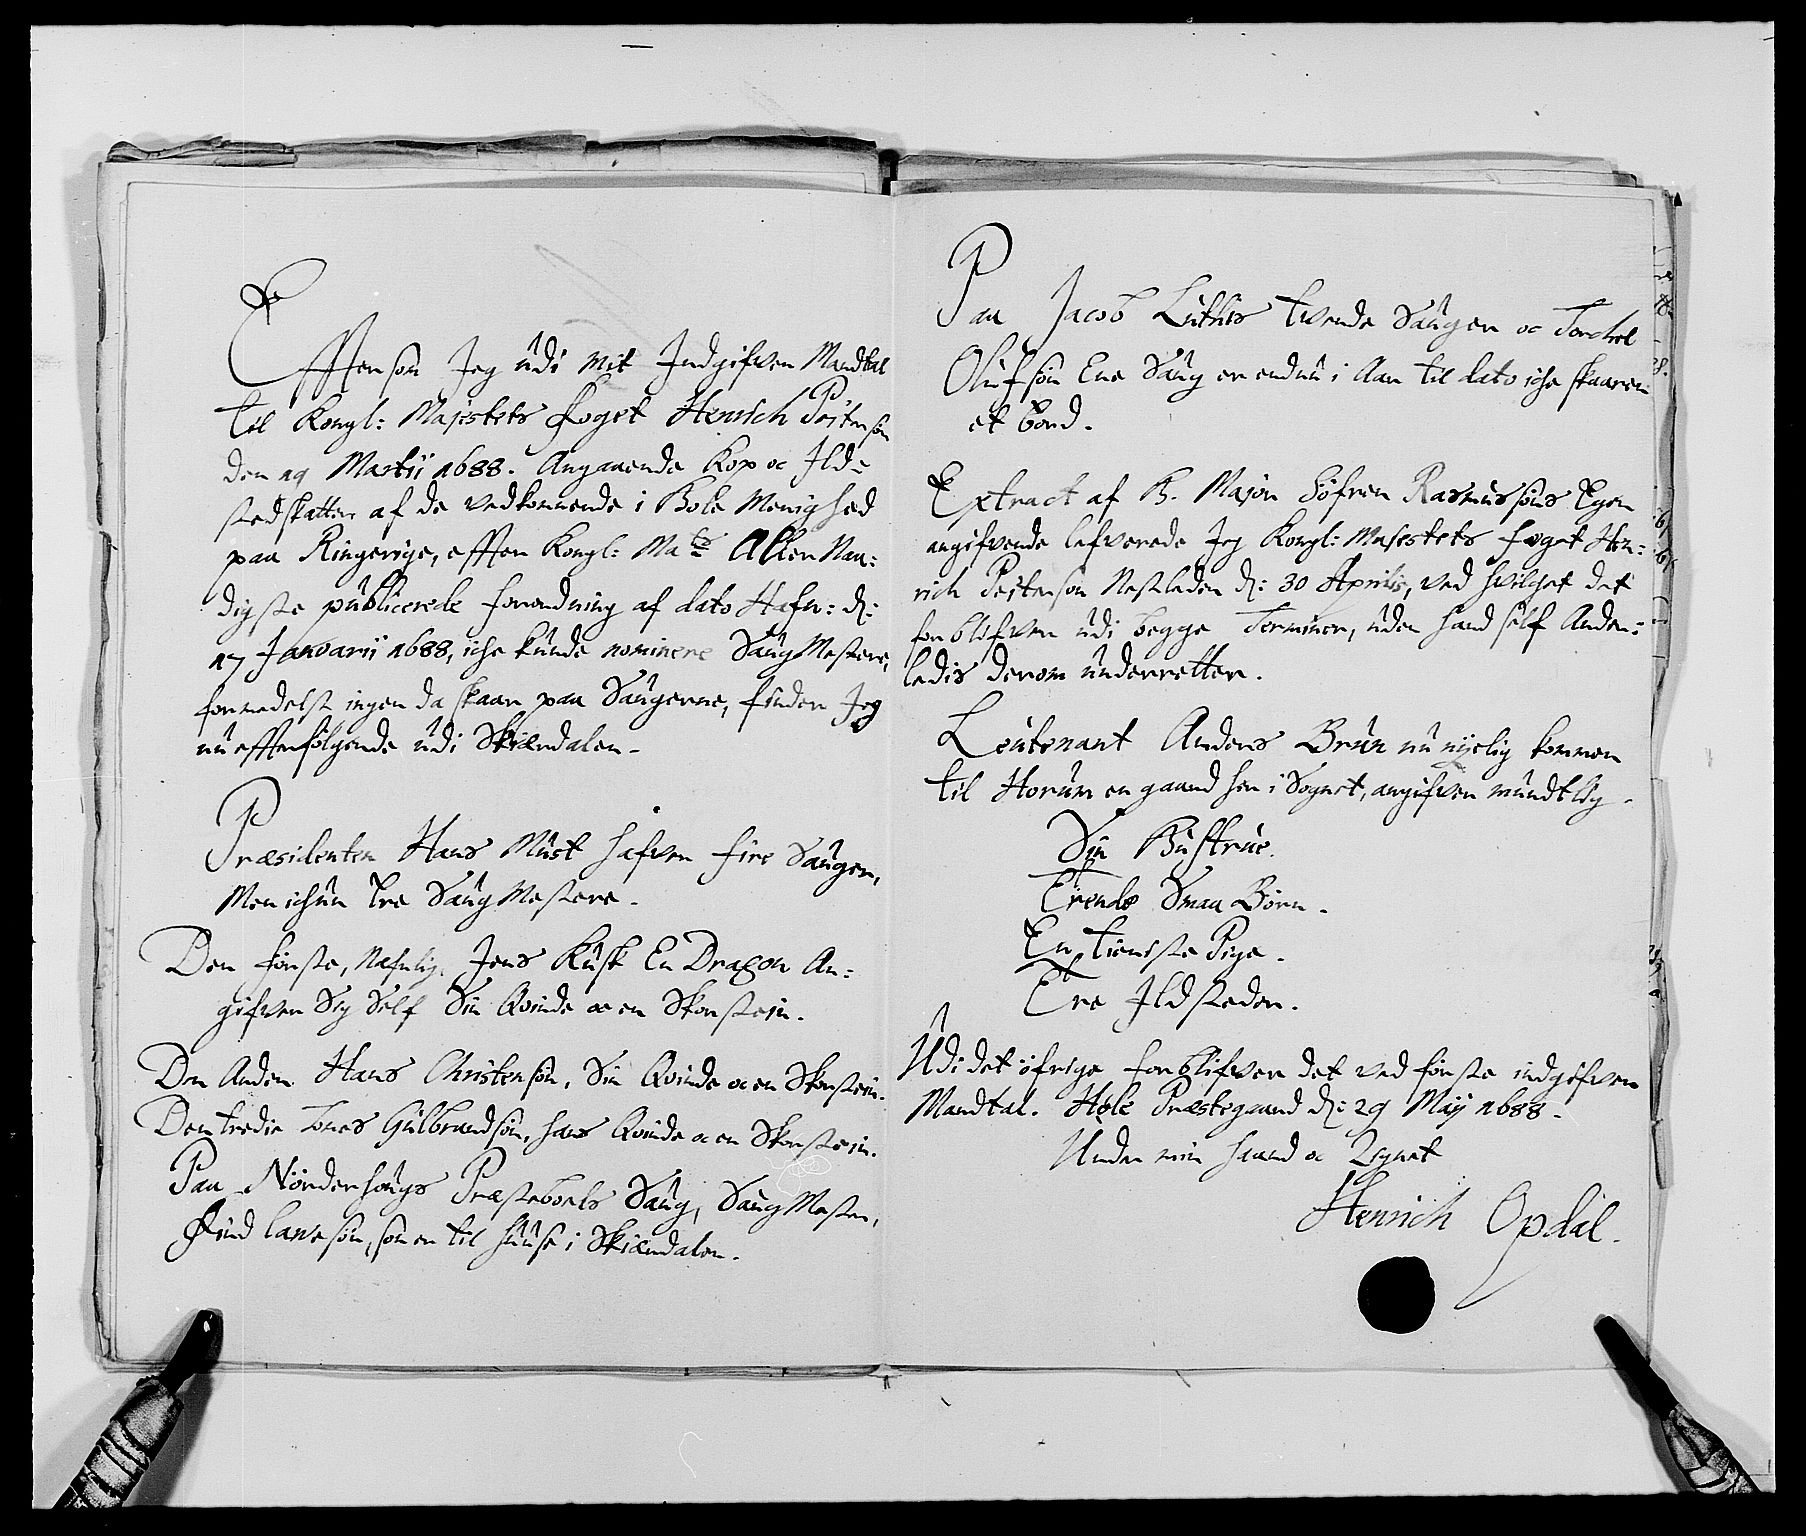 Efftersom Jeg udi mit Indgifven Mandtal
til Kongl: Majestets foget Henrich Pôstersøn
den 19 Martii 1688. Angaaende Kop oc Ild-
stedskatter af de vedkommende i Hole Menighed
paa Ringerige, effter Kongl: Ma:ts Aller Naa:
digste publicerede forordning af dato Hafn: d:
17 Januarii 1688, iche kunde nominere Saug Mestere,
formedelst ingen da skaar paa Saugerne, finder Jeg
nu effterfølgende udi Skiærdalen-
Præsidenten Hans Must hafver fire Sauger,
Men ichun tre Saug Mestere.
Den første, Nefnlig, Jens Kusk En Dragon An:
gifver Sig Self Sin Qvinde oc en Skorstein.
Den Anden Hans Christensøn, Sin Qvinde oc en Skorstein.
Den tredie Tores Gulbrandsøn, hans Qvinde oc en Skorstein.
Paa Nørderhougs Præsteboels Saug, Saug Mester,
Øfind larssøn, som er til huuse i Skiærdalen.
Paa Jacob Luthis tvende Sauger oc Torchel
Olufsøn Ene Saug er endnu i Aar til dato iche skaaren
et bord.
Extract af H. Major Søfren Rasmussøns Egen
angifvende lefverede Jeg Kongl: Majestets foget Hen:
rich Pestersøn Nestleden d: 30 Aprilis, ved hvilchet det
forblifver udi begge Terminer, uden hand self Ander:
ledis derom underretter.
Leutenant Anders Brun nu nyelig kommen
til Horum en gaard her i Sognet, angifver mundtlig.
Sin Hustrue.
Trende Smaa Børn.
En tieniste Pige.
Tre Ildsteder.
Udi det øfrige forblifver det ved første indgifven
Mandtal. Hole Præstegaard d: 29 Maij 1688.
Under min haand oc Zignet
Henrich Opdal.